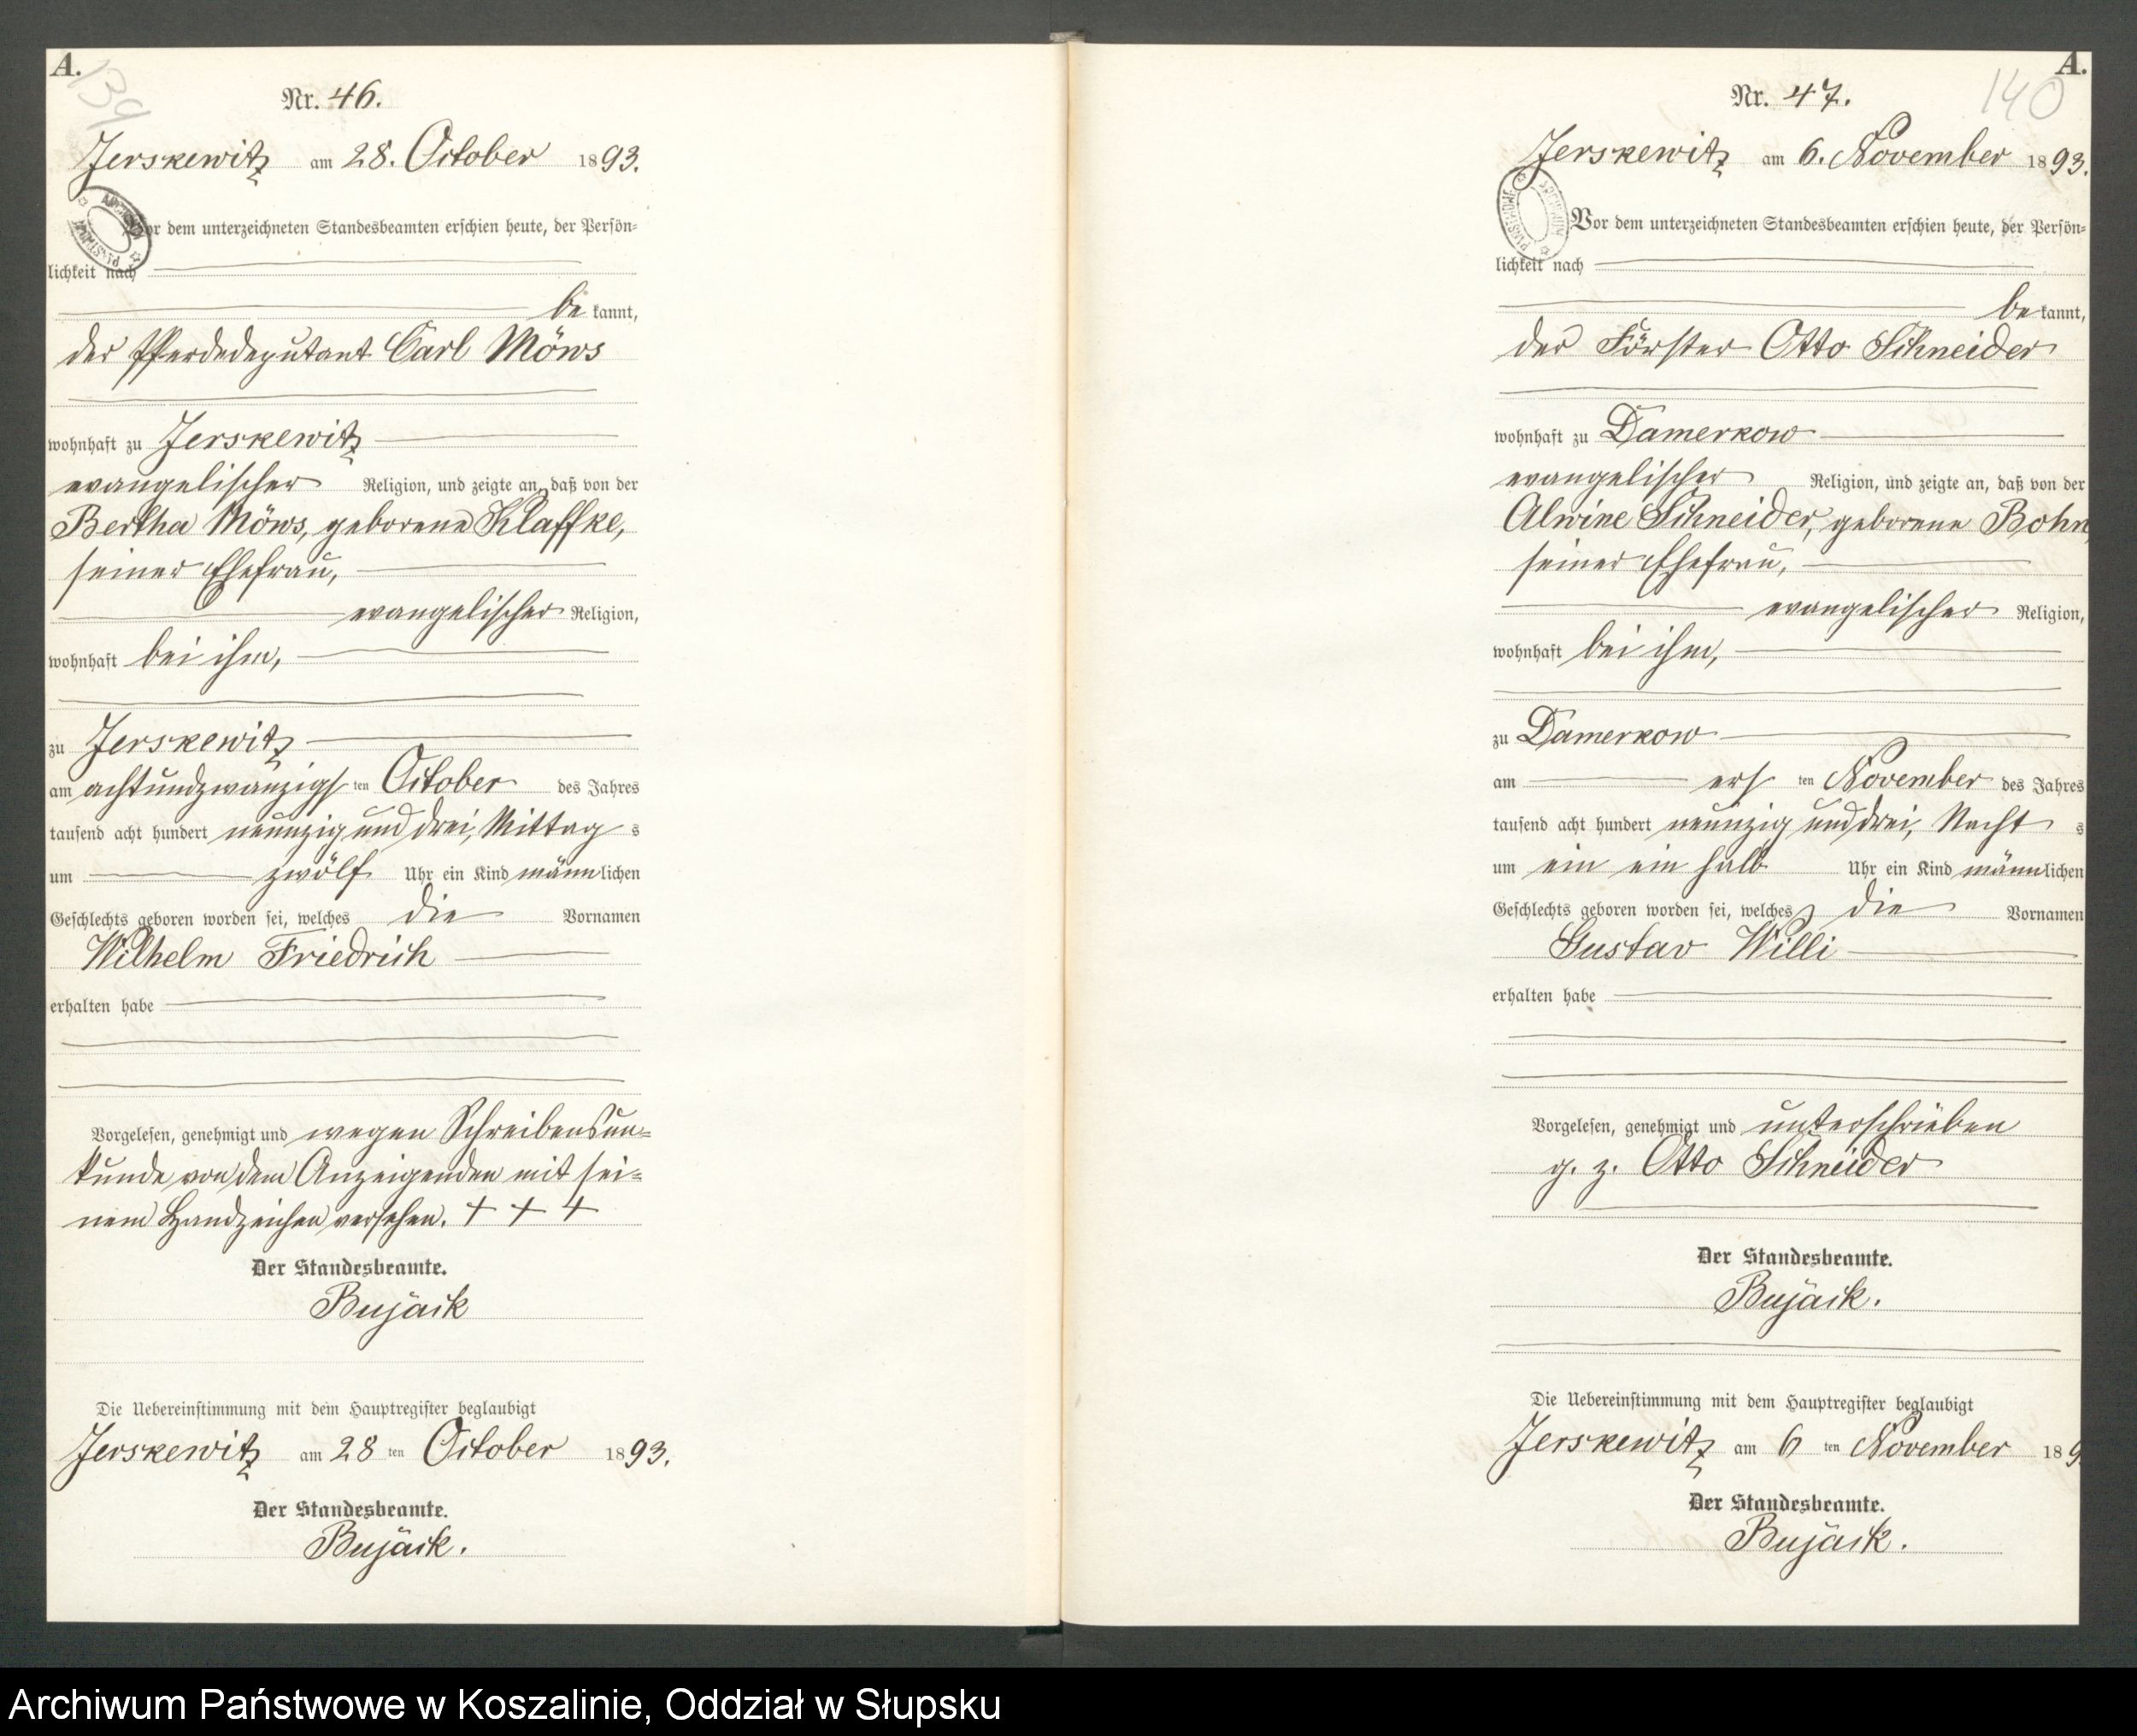 A.
139
Nr. 46.
Jerskewitz am 28. October 1893.
Vor dem unterzeichneten Standesbeamten erschien heute, der Persön-
lichkeit nach
be kannt,
der Pferdedeputant Carl Möws
wohnhaft zu Jerskewitz
evangelischer Religion, und zeigte an, daß von der
Bertha Möws, geborene Klaffke,
seiner Ehefrau,
evangelischer Religion,
wohnhaft bei ihm,
zu Jerskewitz
am achtundzwanzigs ten October des Jahres
tausend acht hundert neunzig und drei, Mittag s
um zwölf Uhr ein Kind männlichen
Geschlechts geboren worden sei, welches die Vornamen
Wilhelm Friedrich
erhalten habe
Vorgelesen, genehmigt und wegen Schreibensun-
kunde von dem Anzeigenden mit sei-
nem Handzeichen versehen. + + +
Der Standesbeamte.
Bujack
Die Uebereinstimmung mit dem Hauptregister beglaubigt
Jerskewitz am 28 ten October 1893.
Der Standesbeamte.
Bujack.
A.
140
Nr. 47.
Jerskewitz am 6. November 1893.
ARCHIWUM PAŃSTWOWE
Vor dem unterzeichneten Standesbeamten erschien heute, der Persön-
lichkeit nach
be kannt,
der Förster Otto Schneider
wohnhaft zu Damerkow
evangelischer Religion, und zeigte an, daß von der
Alwine Schneider, geborene Bohn,
seiner Ehefrau,
evangelischer Religion,
wohnhaft bei ihm,
zu Damerkow
am ers ten November des Jahres
tausend acht hundert neunzig und drei, Nacht s
um ein ein halb Uhr ein Kind männlichen
Geschlechts geboren worden sei, welches die Vornamen
Gustav Willi
erhalten habe
Vorgelesen, genehmigt und unterschrieben
g. z. Otto Schneider
Der Standesbeamte.
Bujack.
Die Uebereinstimmung mit dem Hauptregister beglaubigt
Jerskewitz am 6 ten November 189
Der Standesbeamte.
Bujack.
Archiwum Państwowe w Koszalinie, Oddział w Słupsku